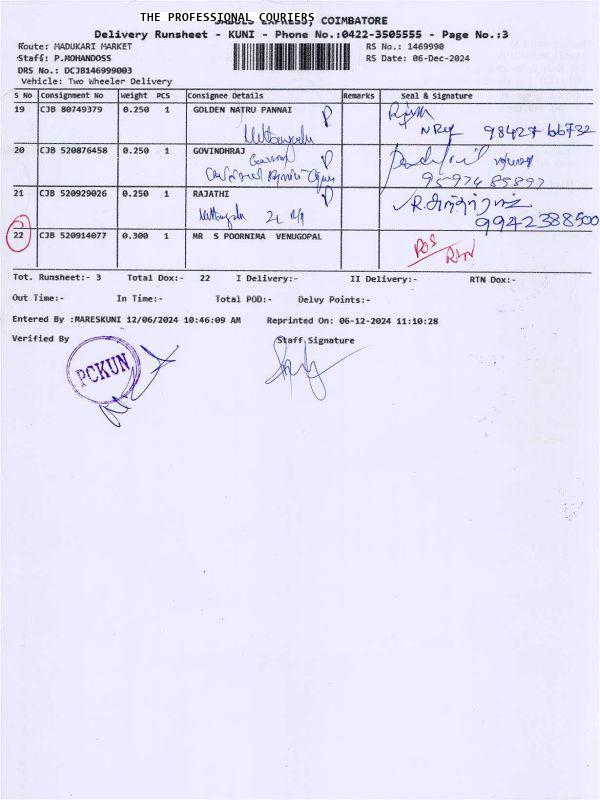 THE PROFESSIONAL COURIERS
EXPRESS, COIMBATORE
Delivery Runsheet - KUNI - Phone No.:0422-3505555 - Page No.:3
Route: MADUKARI MARKET RS No.: 1469990
Staff: P.MOHANDOSS RS Date: 06-Dec-2024
DRS No.: DCJB146999003
Vehicle: Two Wheeler Delivery
S No Consignment No Weight PCS Consignee Details Remarks Seal & Signature
19 CJB 80749379 0.250 1 GOLDEN NATRU PANNAI
P
98427 66732
20 CJB 520876458 0.250 1 GOVINDHRAJ
P
95974 85897
21 CJB 520929026 0.250 1 RAJATHI
P
9942388500
22 CJB 520914077 0.300 1 MR S POORNIMA VENUGOPAL
RTN
Tot. Runsheet:- 3 Total Dox:- 22 I Delivery:- II Delivery:- RTN Dox:-
Out Time:- In Time:- Total POD:- Delvy Points:-
Entered By :MARESKUNI 12/06/2024 10:46:09 AM Reprinted On: 06-12-2024 11:10:28
Verified By Staff Signature
PCKUN